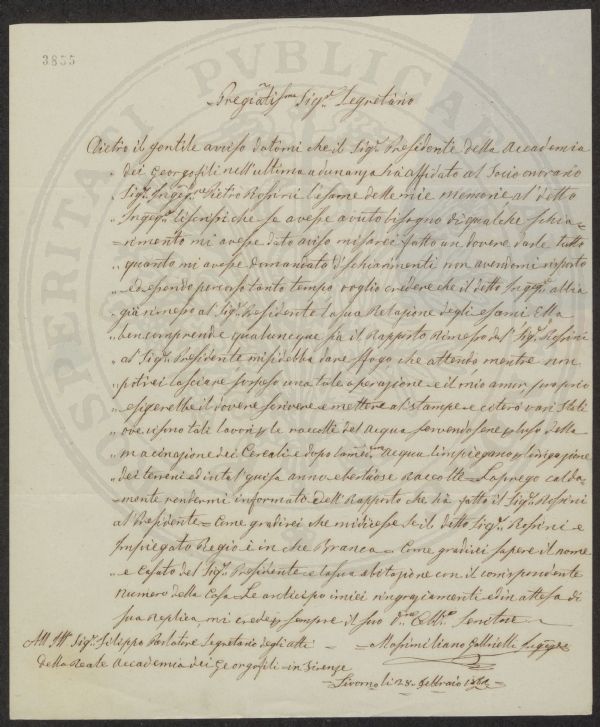 3855
PROSPERITATI PUBLICAE
Pregiatis.mo Sig.r Segretario
Dietro il gentile aviso datomi che il Sig.r Presidente della Accademia
„ dei Georgofili nell'ultima adunanza ha affidato al Socio onorario
„ Sig.r Ingeg.re Pietro Rossini l'esame delle mie memorie al detto
„ Ingeg.r scrissi che se avesse avuto bisogno di qualche schia=
=rimento mi avesse dato aviso mi sarei fatto un dovere darle tutto
„ quanto mi avesse domandato di schiarimenti non avendomi risposto
„ ed essendo percorso tanto tempo voglio credere che il detto Ingeg.r abbia
„ già rimesso al Sig.r Presidente la sua Relazione degli esami Ella
ben comprende qualunque sia il Rapporto Rimesso dal Sig.r Rossini
al Sig.r Presidente mi si debba dare sfogo che attendo mentre non
„ potrei lasciare sospeso una tale operazione e il mio amor proprio
„ esigerebbe il dovere scrivere e mettere al stampe e vari Stati
„ ove vi sino tali lavori le raccolte del Acqua servendosene della
„ macinazione dei Cereali e dopo Acqua l'impiegano irrigazione
dei terreni ed in tal guisa anno ebertose Raccolte = La prego calda=
mente rendermi informato dell Rapporto che hà fatto il Sig.r Rossini
al Presidente = Come gradirei che mi dicesse se il detto Sig.r Rossini e
Impiegato Regio è in che Branca = Come gradirei sapere il nome
= e Casato del Sig.r Presidente e la sua abitazione con il corrispondente
Numero della Casa = Le anticipo i miei ringraziamenti ed in attesa di
sua Replica mi creda sempre il suo Servitore
All Ill Sig.r Filippo Parlatore Segretario degli atti
Massimiliano Gabbrielli Ingeg.re
della Reale Accademia dei Georgofili in Firenze
Livorno li 28 Febbraio